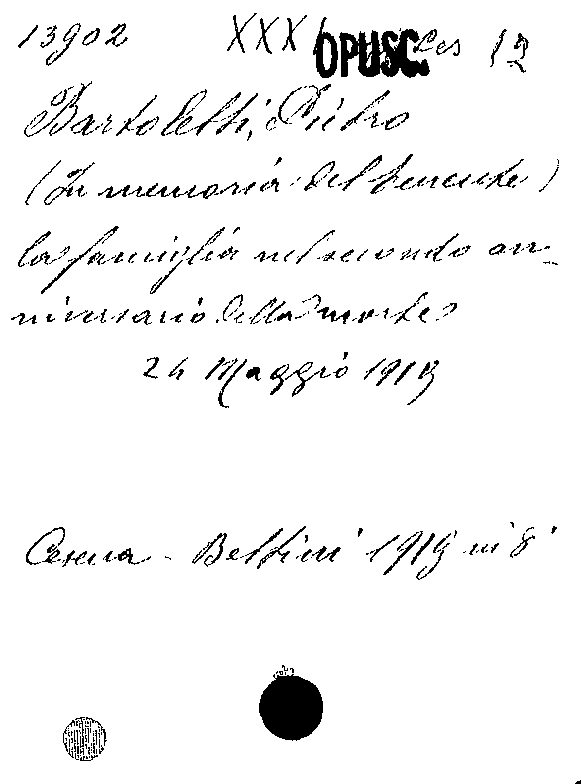 13902 XXX OPUSC. Ces 12
Bartoletti, Pietro
(In memoria del tenente)
la famiglia nel secondo an-
niversario della morte
24 Maggio 1919
Cesena - Bettini 1919 in 8°